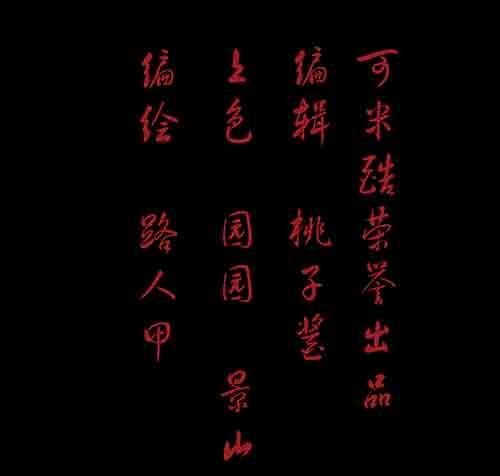 可米酷荣誉出品
编辑 桃子酱
上色 园园 景山
编绘 路人甲